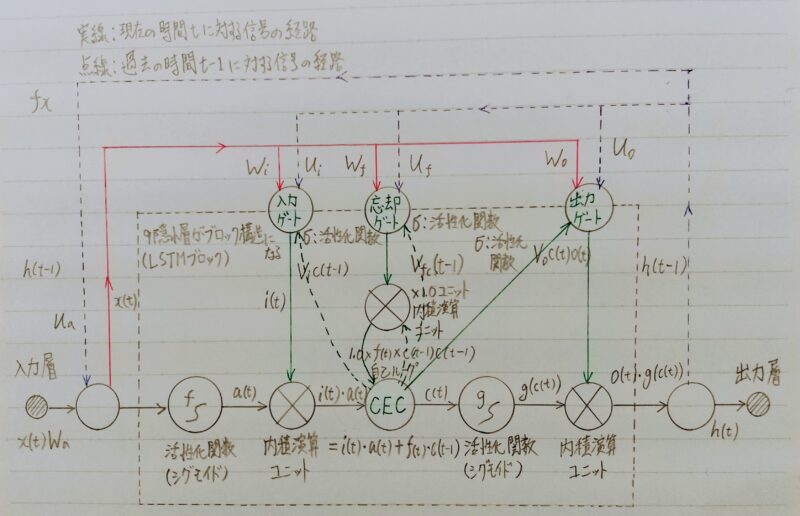 実線：現在の時間tに対する信号の経路
点線：過去の時間t-1に対する信号の経路
fx
Wi
Ui
Wf
Uf
Wo
Uo
入力
ゲート
忘却
ゲート
出力
ゲート
隠れ層がブロック構造に
なる
(LSTMブロック)
σ：活性化関数
σ：活性化関数
σ：活性化
関数
h(t-1)
x(t)
Ua
i(t)
Vic(t-1)
Vfc(t-1)
Voc(t)o(t)
h(t-1)
×1.0ユニット
内積演算
ユニット
1.0×f(t)×c(t-1)c(t-1)
自己ループ
入力層
f
a(t)
i(t)・a(t)
CEC
c(t)
g
g(c(t))
o(t)・g(c(t))
出力層
x(t)Wa
h(t)
活性化関数
(シグモイド)
内積演算
ユニット
=i(t)・a(t)+f(t)・c(t-1)
活性化関数
(シグモイド)
内積演算
ユニット